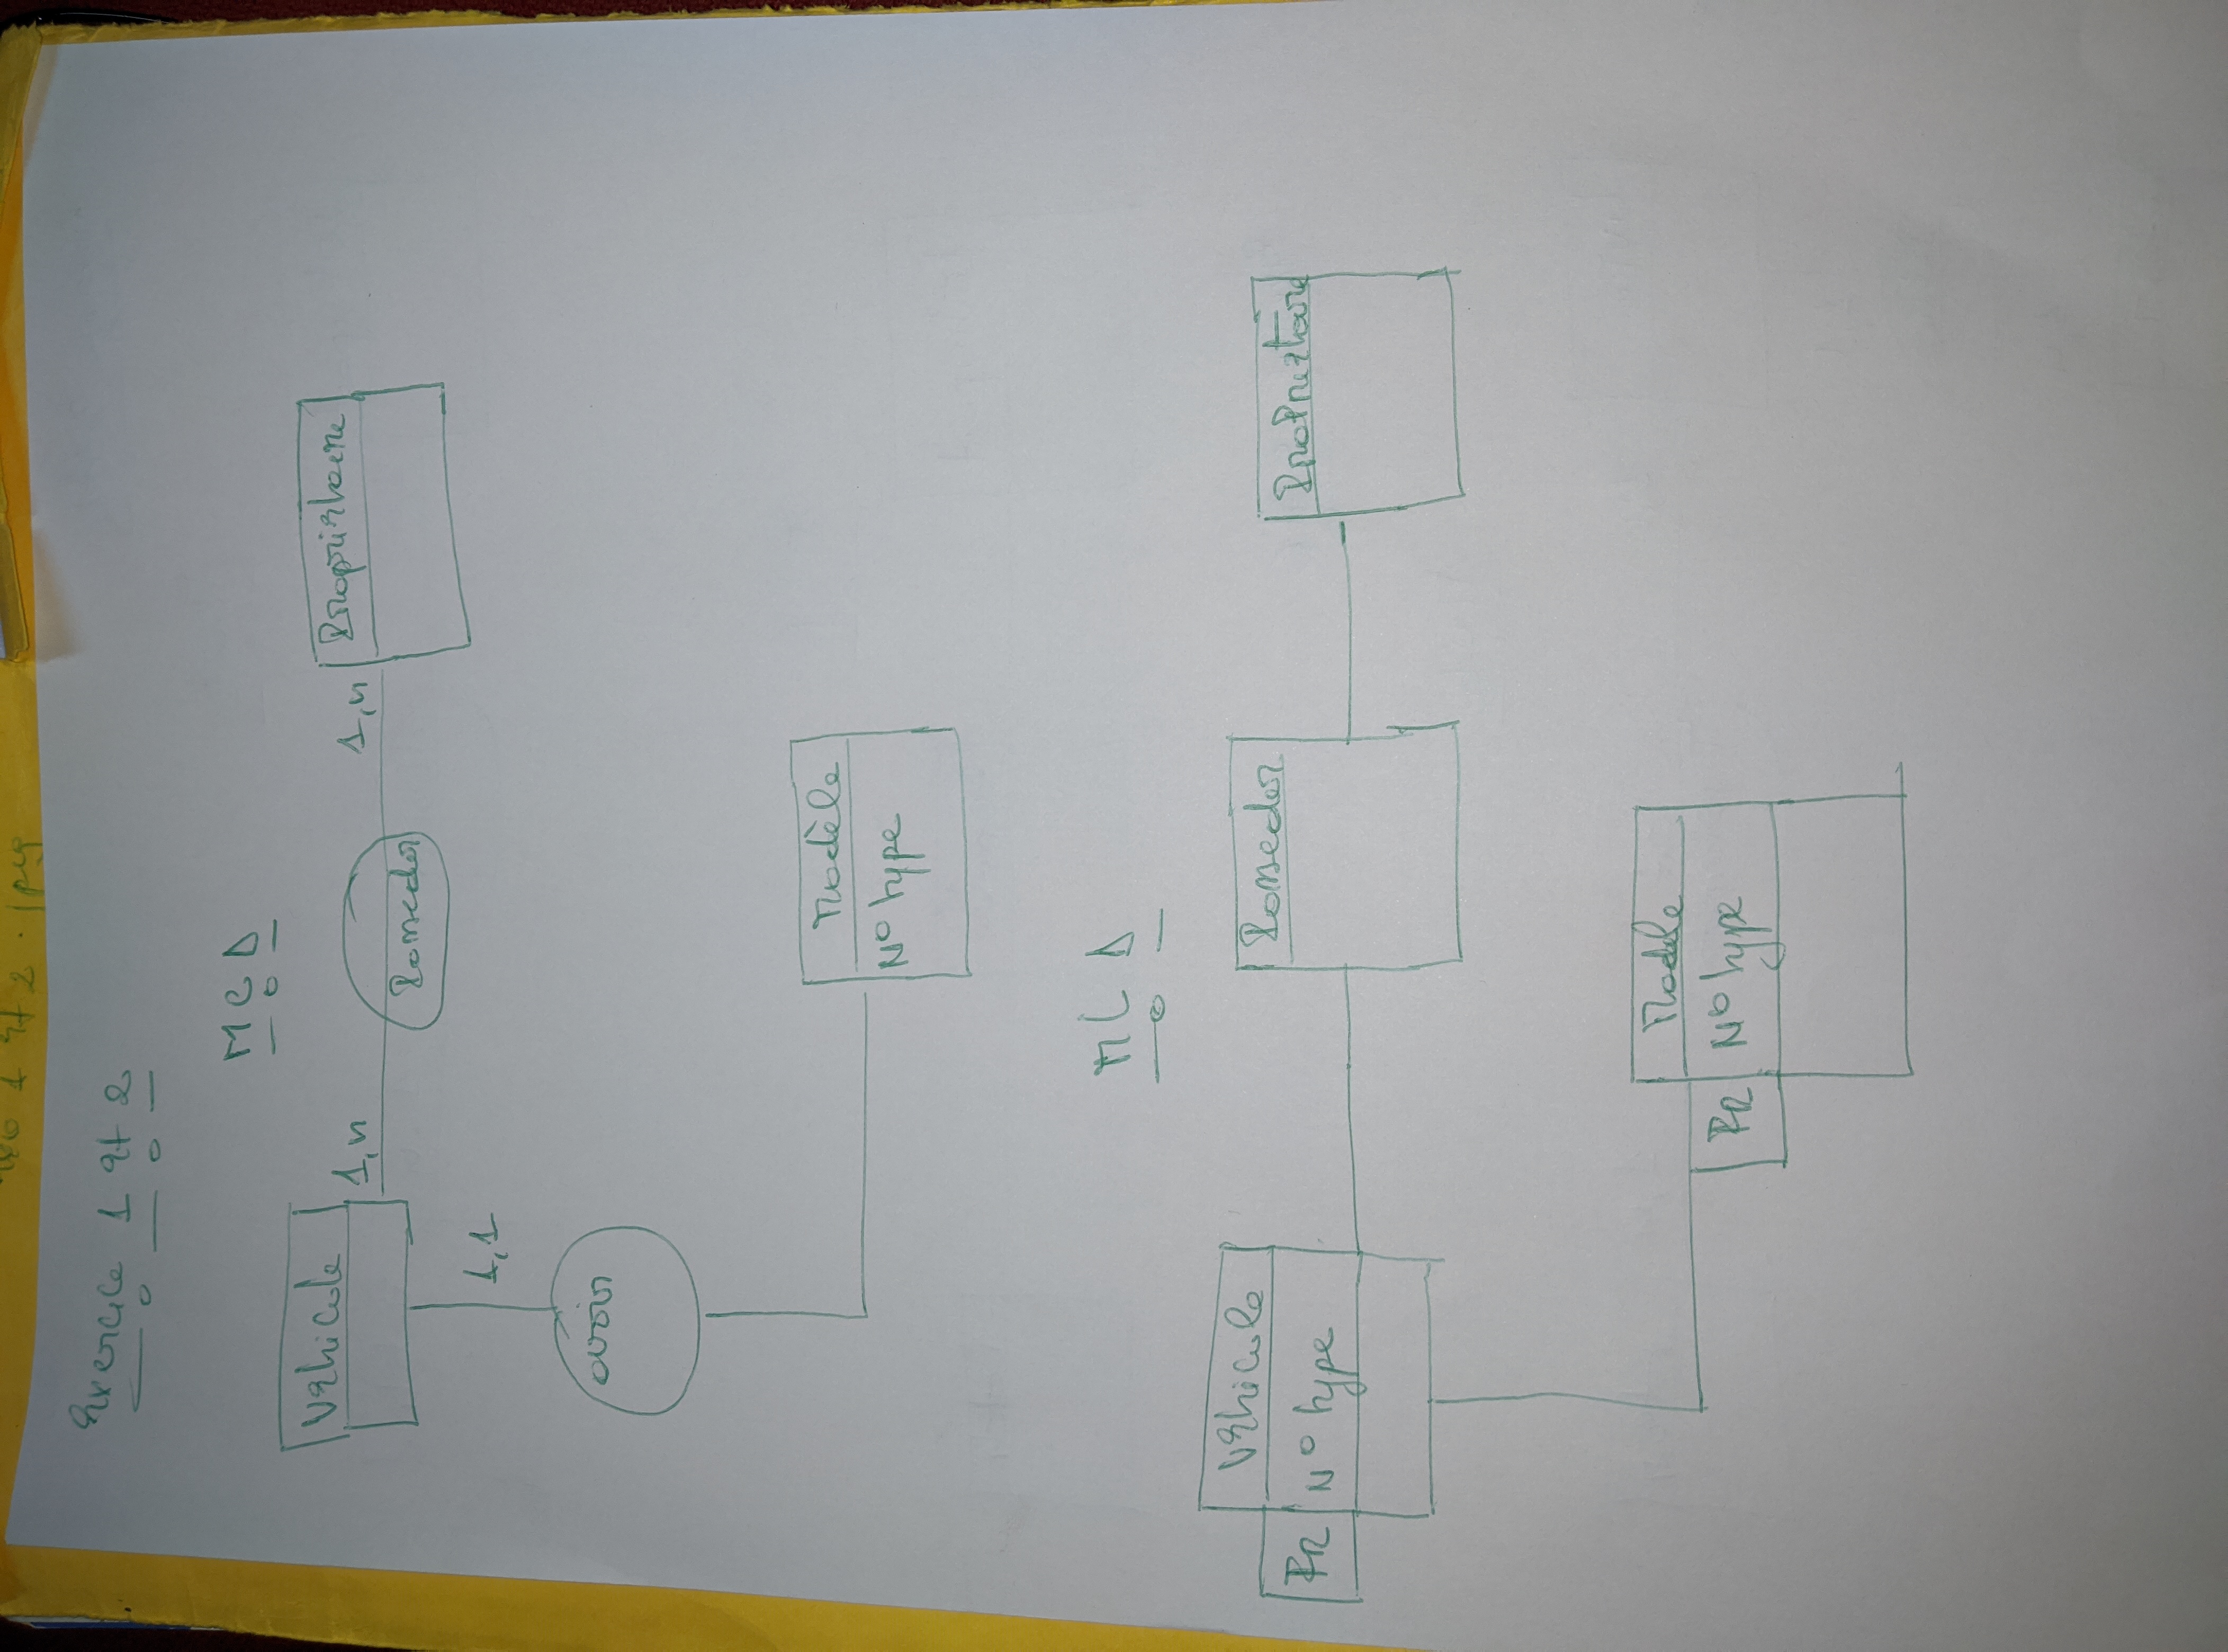 1 et 2 . jpeg
Exercice 1 et 2
MCD
Véhicule
1,n
Posseder
1,n
Proprietaire
1,1
avoir
Modèle
N° type
MLD
Véhicule
PR
N° type
Posseder
Proprietaire
Modèle
PR
N° type